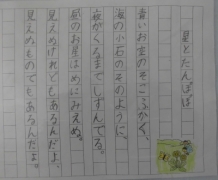 星とたんぽぽ
青いお空のそこふかく、
海の小石のそのように、
夜がくるまでしずんでる、
昼のお星はめにみえぬ。
見えぬけれどもあるんだよ、
見えぬものでもあるんだよ。